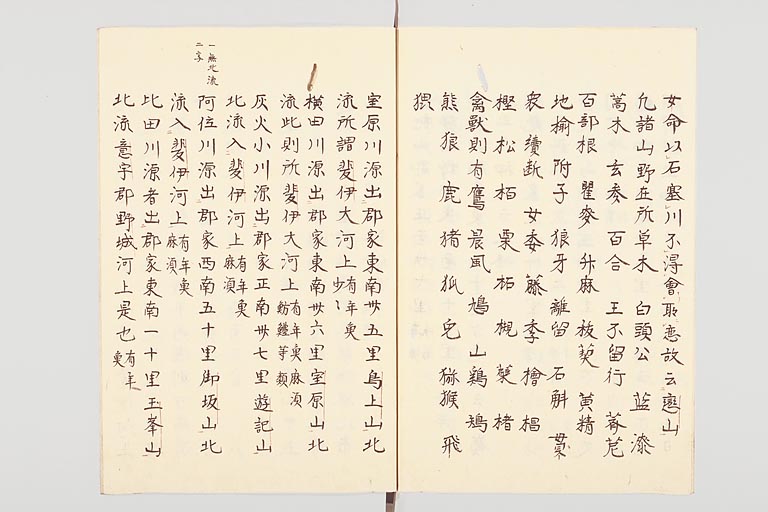 女命以石塞川不得會所恋故云戀山
凢諸山野在所草木白頭公藍漆
蒿木玄参百合王不留行薺苨
百部根瞿麥升麻抜葜黄精
地榆附子狼牙離留石斛藁
衆續断女委藤李檜椙
樫松栢栗柘槻蘗楮
禽獣則有鷹晨風鳩山鶏鴙
熊狼鹿猪狐兎猕猴飛
猥
室原川源出郡家東南卅五里鳥上山北
流所謂斐伊大河上有年魚少〻
横田川源出郡家東南卅六里室原山北
流此則所斐伊大河上有年魚麻須魴鱧等類
灰火小川源出郡家正南卅七里遊記山
北流入斐伊河上有年魚麻須
阿位川源出郡家西南五十里御坂山北
流入斐伊河上有年魚麻須
一無北流二字
比田川源者出郡家東南一十里玉峯山
北流意宇郡野城河上是也有年魚